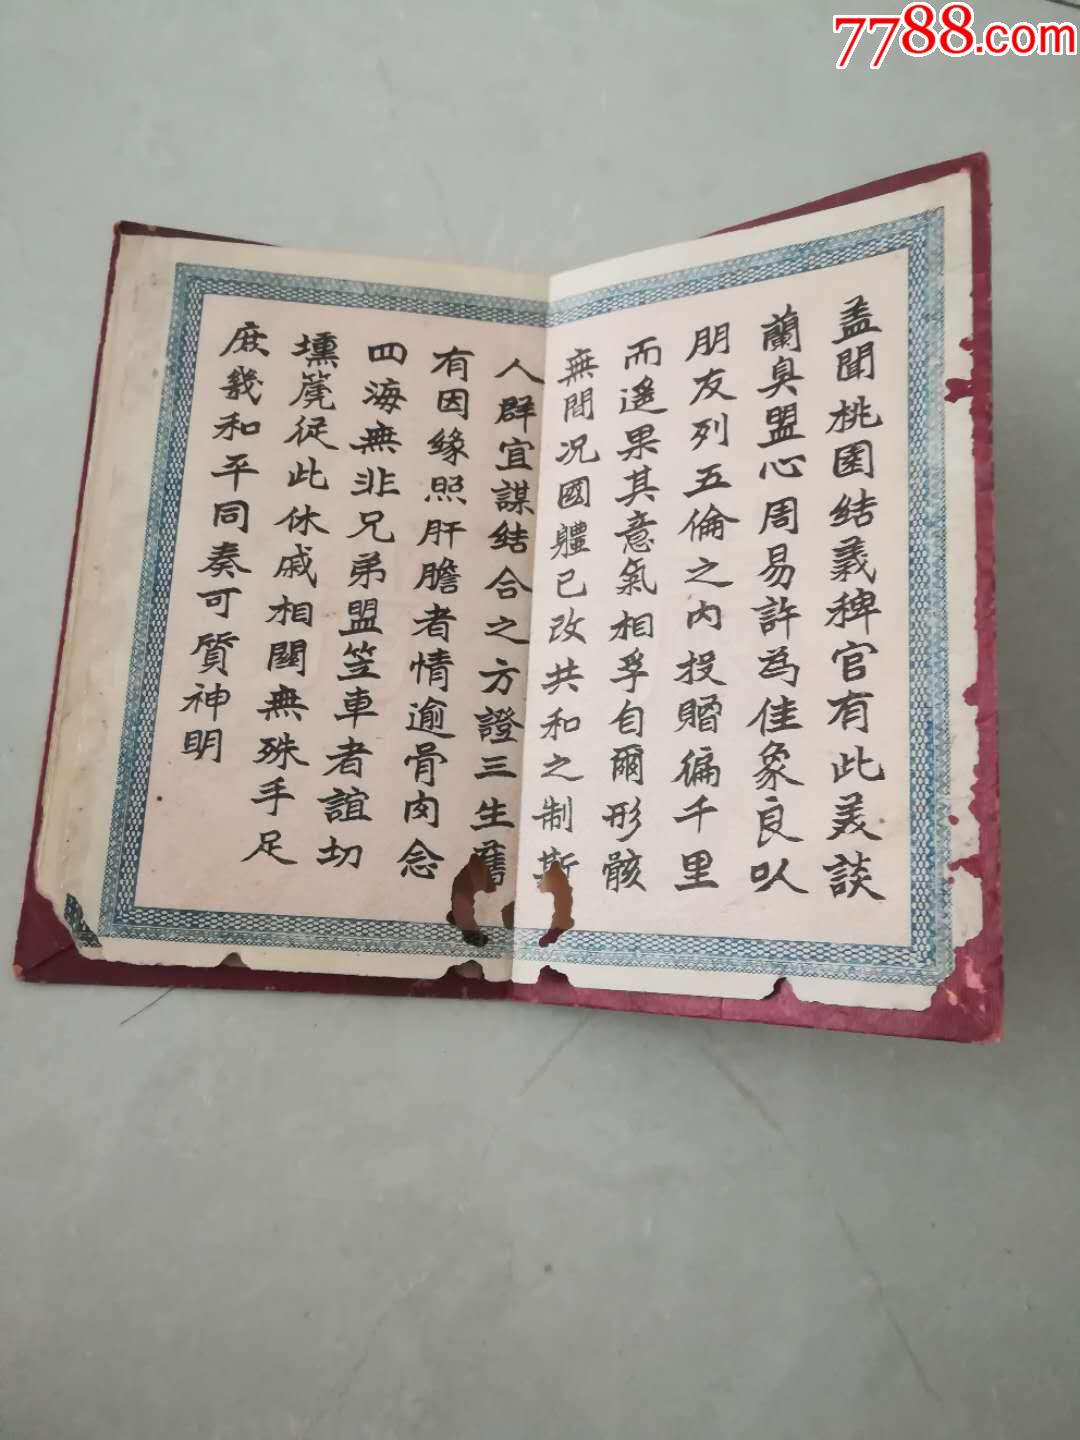 7788.com
盖聞桃園結義稗官有此美談
蘭臭盟心周易許為佳象良以
朋友列五倫之内投贈徧千里
而遙果其意氣相孚自爾形骸
無間况國軆已改共和之制斯
人群宜謀結合之方證三生舊
有因緣照肝膽者情逾骨肉念
四海無非兄弟盟笠車者誼切
壎箎從此休戚相關無殊手足
庶幾和平同奏可質神明